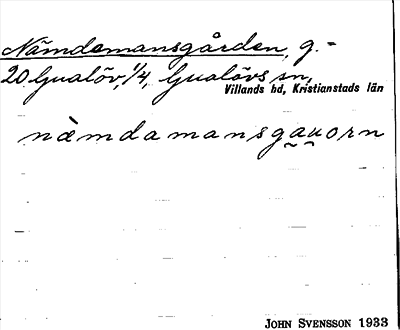 Nämdemansgården, g. -
20 Gualöv, 1/4, Gualövs sn,
Villands hd, Kristianstads län
nämdamansgau̯orn
JOHN SVENSSON 1933